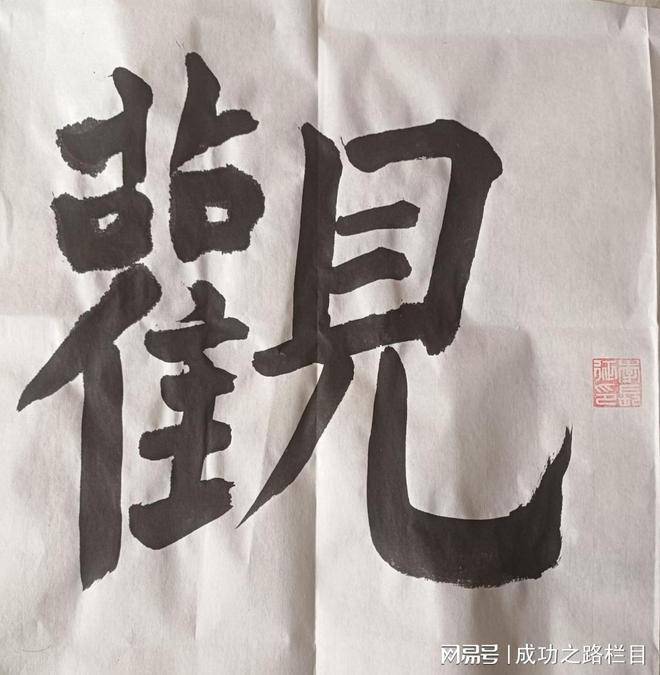 觀
网易号 | 成功之路栏目